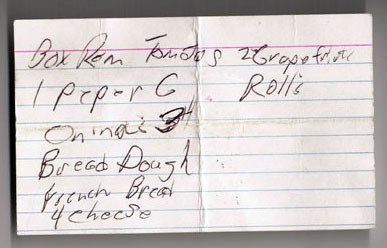 Box Rom Tomatos 2 Grapefruite
1 peper G Rolls
Onino's 34
Bread Dough
french Bread
4 cheese